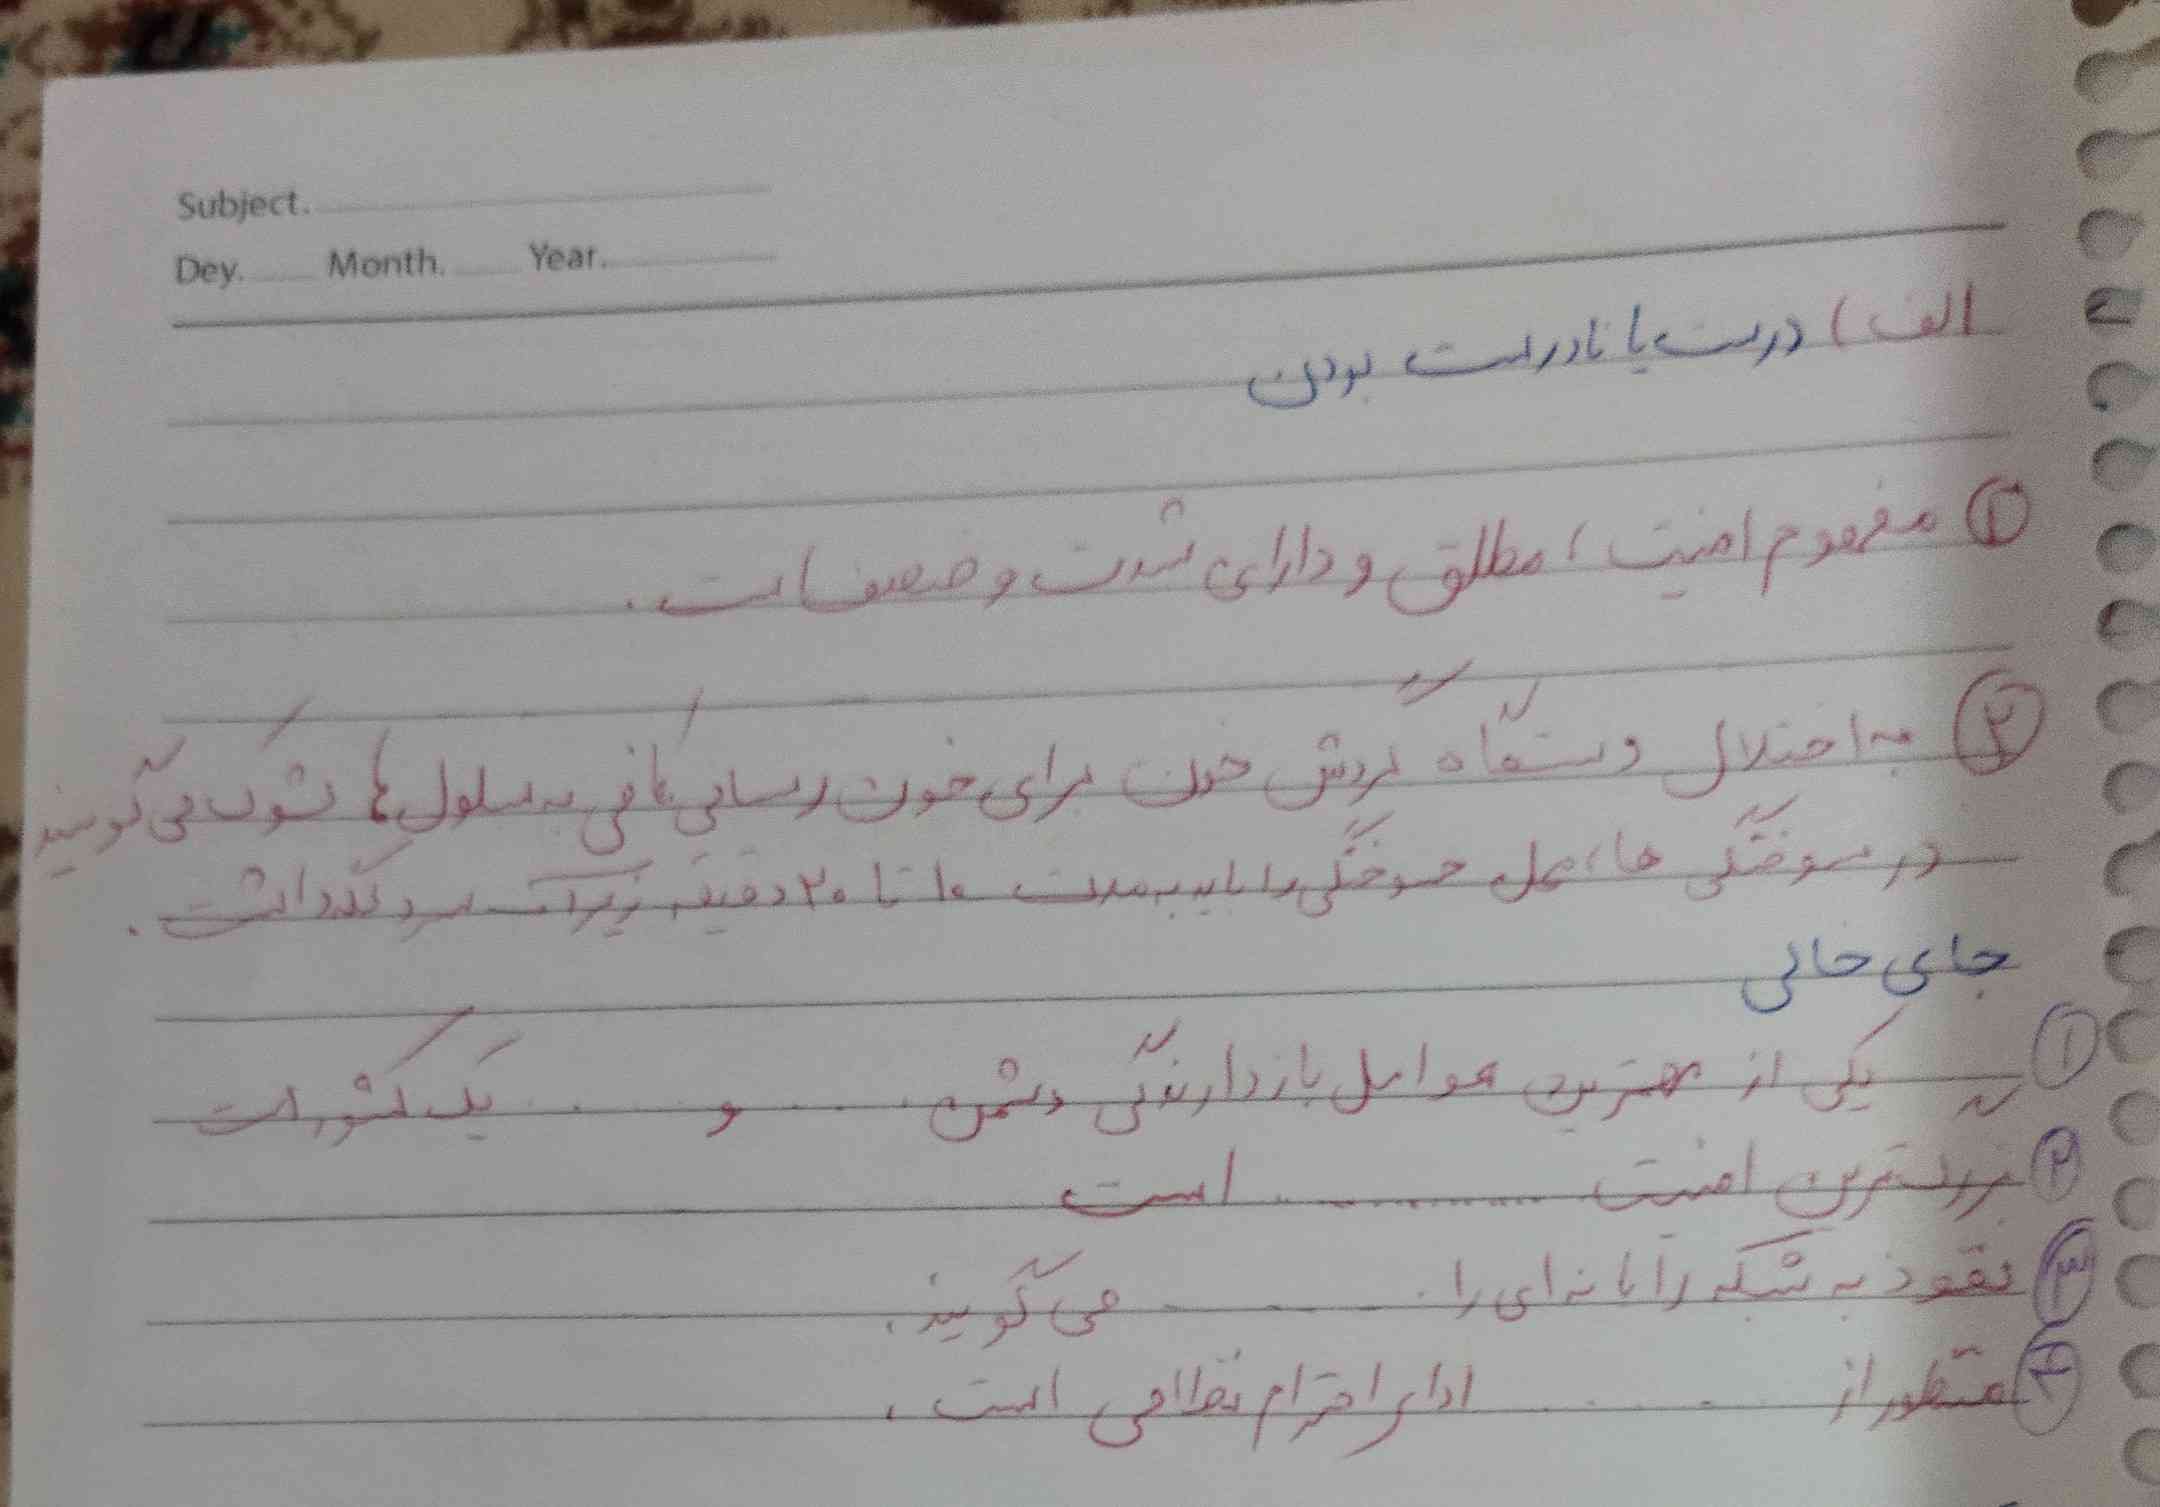 Subject.
Dey. Month. Year.
الف) درست یا نادرست بودن
① مفهوم امنیت، مطلق و دارای شدت و ضعف است.
② به اختلال دستگاه گردش خون برای خون رسانی کافی به سلول ها شوک می گویند
در سوختگی ها، محل سوختگی را باید به مدت ۱۰ تا ۲۰ دقیقه زیر آب سرد نگه داشت.
جای خالی
① یکی از بهترین عوامل بازدارندگی دشمن ..... و ..... یک کشور است
② بزرگ ترین امنیت ............ است
③ نفوذ به شبکه رایانه ای را ...... می گویند.
④ منظور از ...... ادای احترام نظامی است.